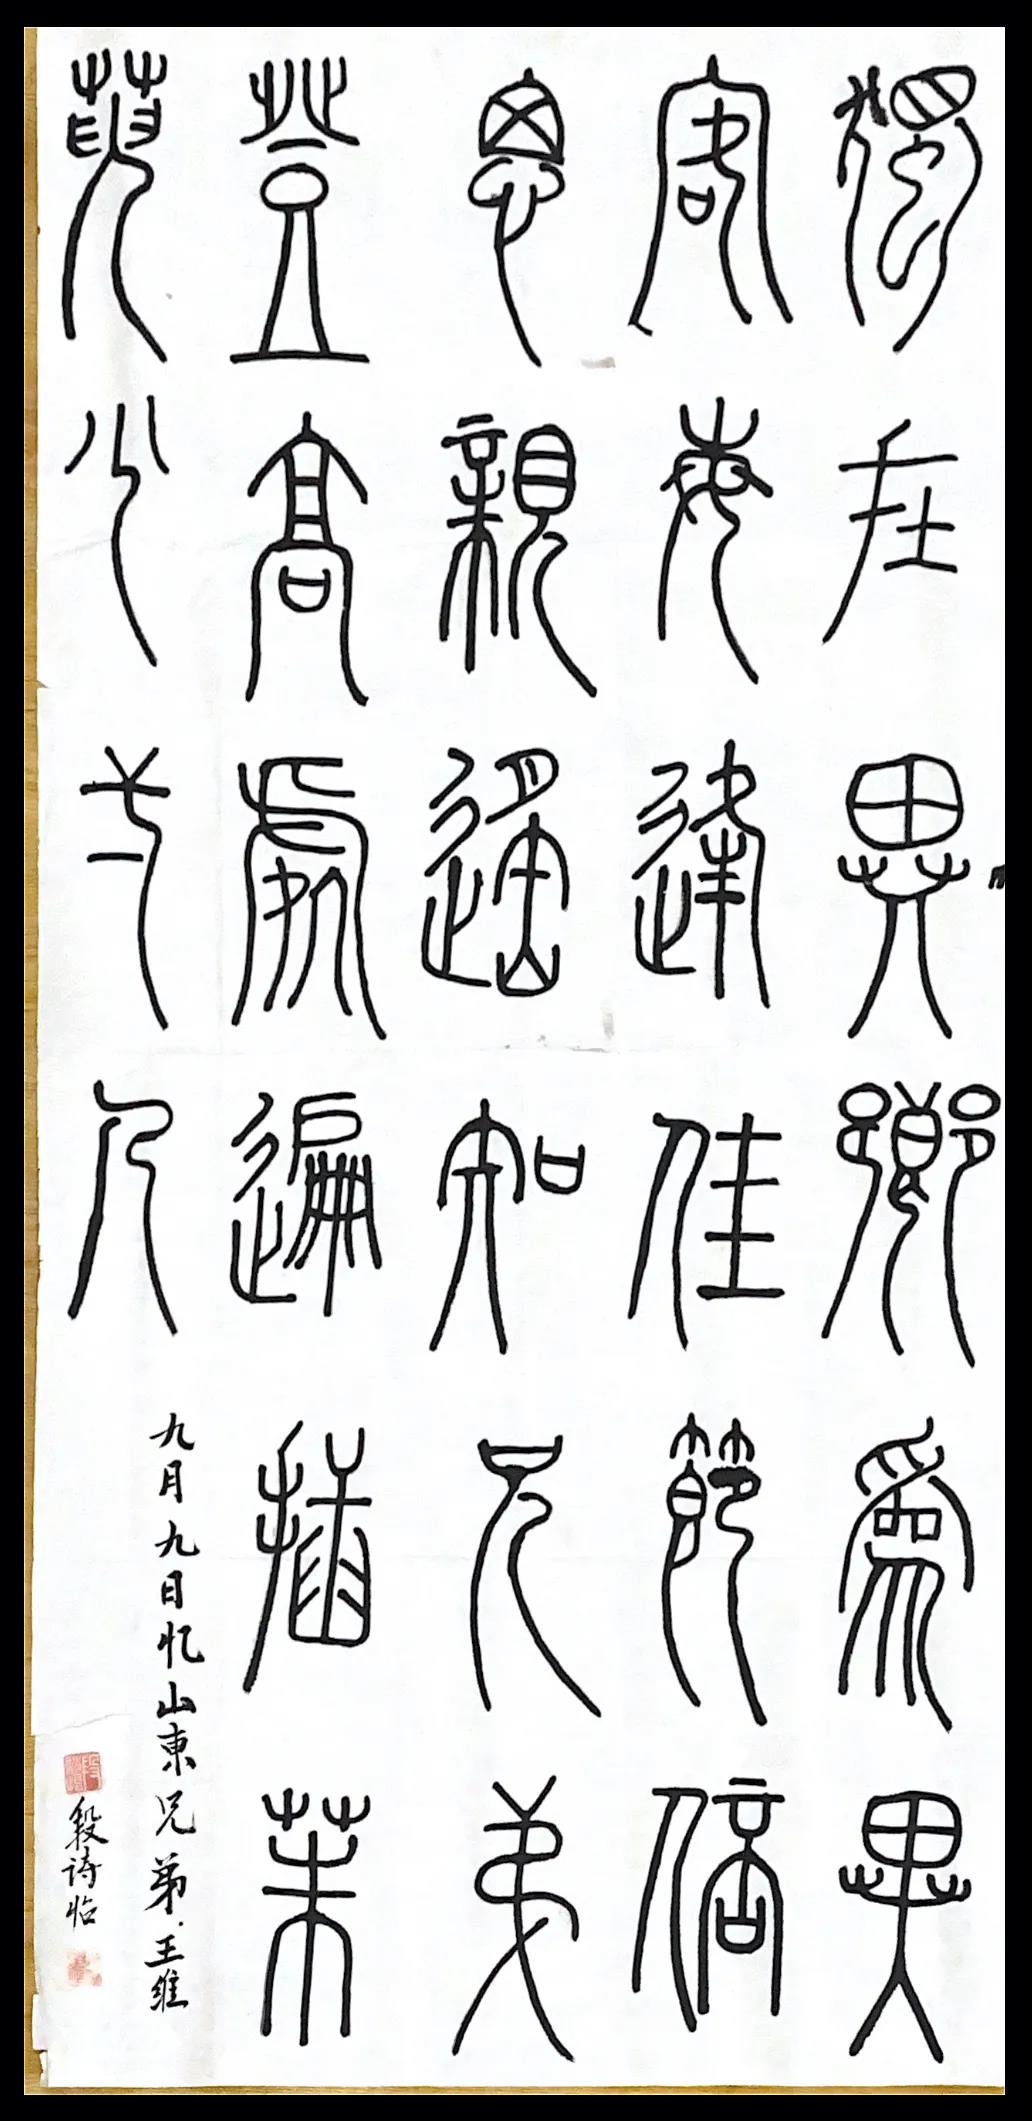 獨在異鄉爲異
客每逢佳節倍
思親遙知兄弟
登高處遍插茱
萸少弌人
九月九日忆山東兄弟·王维
段诗临